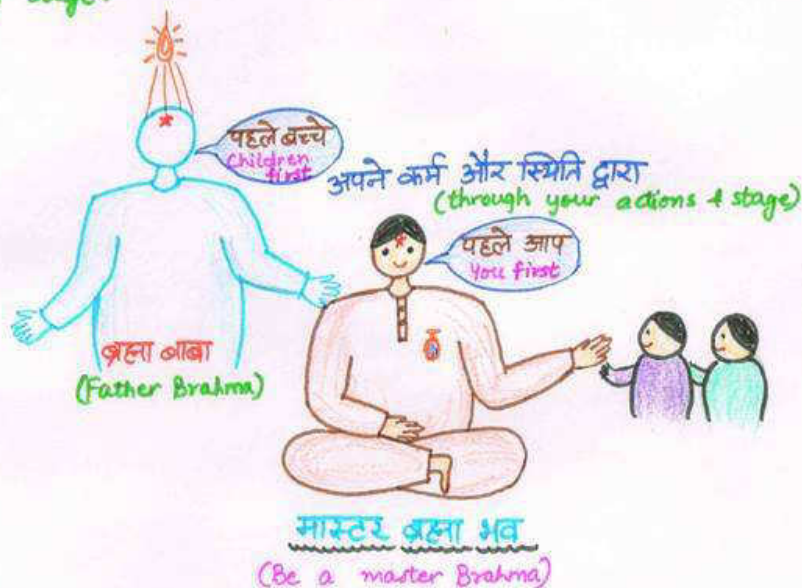 पहले बच्चे
Children
first
अपने कर्म और स्थिति द्वारा
(through your actions & stage)
पहले आप
You first
ब्रह्मा बाबा
(Father Brahma)
मास्टर ब्रह्मा भव
(Be a master Brahma)